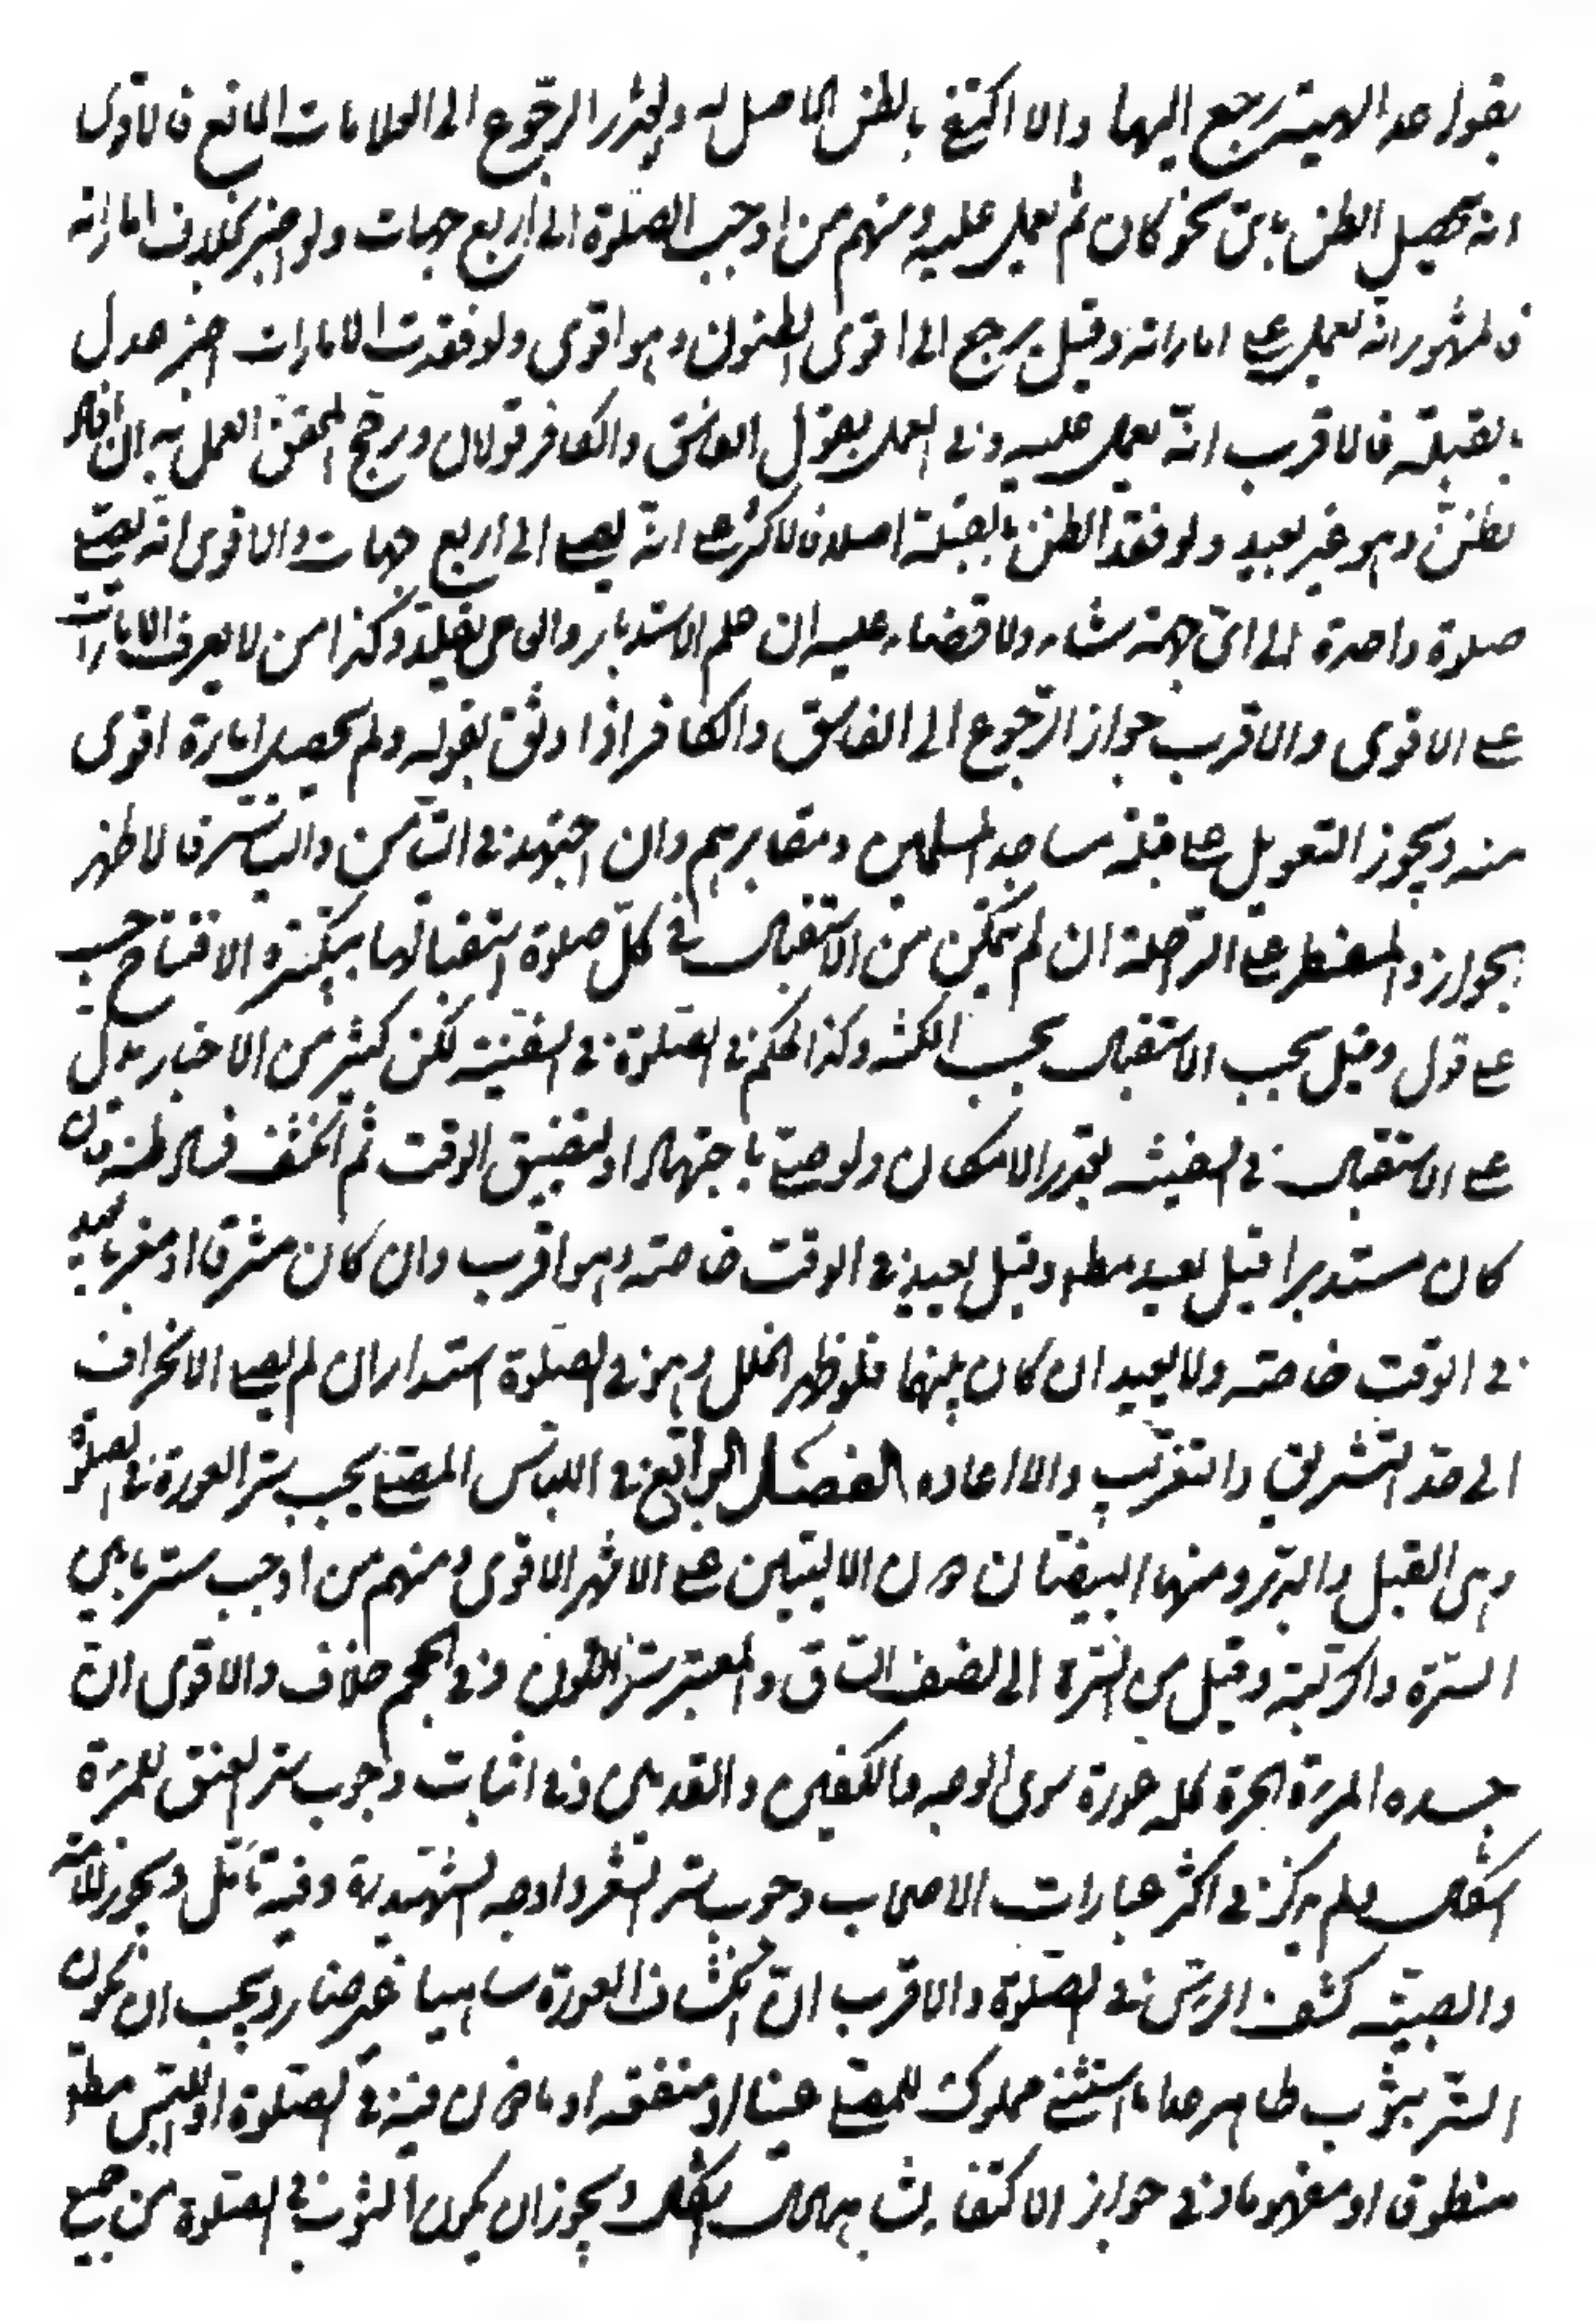 بقواعد الهيئة رجع اليها والا اكتفى بالظن الحاصل له ولتعذر الرجوع الى العلامات المانع فالاقوى
انه يحصل الظن بأى نحو كان ثم يعمل عليه ومنهم من اوجب الصلوة الى اربع جهات ولو اخبر بخلاف اماراته
فالمشهور انه يعمل على اماراته وقيل يرجع الى اقوى الظنون وهو اقوى ولو فقدت الامارات اخبر عدل
بالقبلة فالاقرب انه يعمل عليه وفى العمل بقول الفاسق والكافر قولان ورجح المحقق العمل به ان افاد
بظن وهو غير بعيد ولو فقد الظن بالقبلة اصلا فالاكثر على انه يصلى الى اربع جهات والاقوى انه يصلى
صلوة واحدة الى اى جهة شاء ولا قضاء عليه ان علم الاستدبار والاعمى يقلد وكذا من لا يعرف الامارات
على الاقوى والاقرب جواز الرجوع الى الفاسق والكافر اذا وثق بقوله ولم يحصل امارة اقوى
منه ويجوز التعويل على قبلة مساجد المسلمين ومقابرهم وان اجتهد فى التيامن والتياسر فالاظهر
بجوازه والمضطر على الراحلة ان لم يتمكن من الاستقبال فى كل صلوة استقبالها بتكبيرة الافتتاح حسب
على قول وقيل يجب الاستقبال بحسب المكنة وكذا الحكم فى الصلوة فى السفينة لكن كثير من الاخبار يدل
على الاستقبال فى السفينة بقدر الامكان ولو صلى باجتهاد او لتضيق الوقت ثم انكشف فساد ظنه فان
كان مستدبرا قيل يعيد مطلقا وقيل يعيد فى الوقت خاصة وهو اقرب وان كان مشرقا او مغربا يعيد
فى الوقت خاصة ولا يعيد ان كان بينهما فلو ظهر الخلل وهو فى الصلوة استدار ان لم يصل الانحراف
الى حد التشريق والتغريب والا اعاده الفصل الرابع فى اللباس المصلى يجب ستر العورة فى الصلوة
وهى القبل والدبر ومنها البيضتان دون الاليتين على الاشهر الاقوى ومنهم من اوجب ستر ما بين
السترة والركبة وقيل من السترة الى نصف الساق والمعتبر ستر اللون وفى الحجم خلاف والاقوى ان
جسده المرءة الحرة كله عورة سوى الوجه والكفين والقدمين وفى اثبات وجوب ستر العنق للمرءة
اشكال ولم يذكر فى اكثر عبارات الاصحاب وجوب ستر الشعر واوجبه الشهيد ره وفيه تأمل ويجوز للامة
والصبية كشف الرأس فى الصلوة والاقرب ان انكشاف العورة ساهيا غير ضار ويجب ان يكون
الستر بثوب طاهر عدا ما استثنى مملوك للمصلى عينا او منفعة او مأذون فيه فى الصلوة او اللبس مطلقا
منطوقا او مفهوما وفى جواز الاكتفاء بشاهد الحال اشكال ويجوز ان يكون الثوب فى الصلوة من جميع